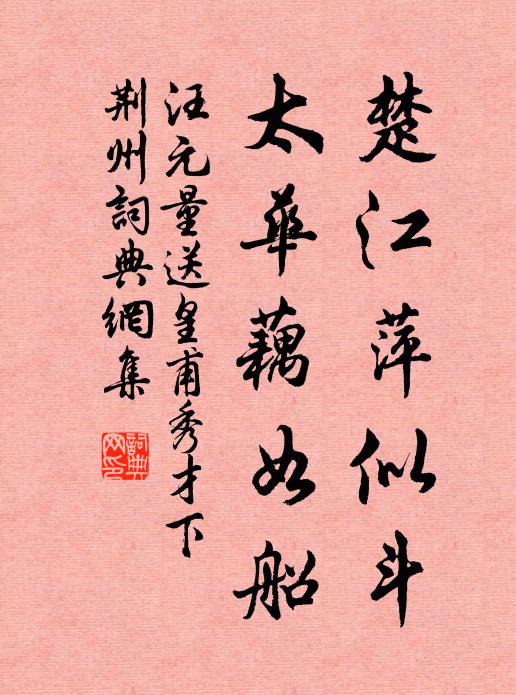 楚江萍似斗
太華藕如船
汪元量送皇甫秀才下
荆州詞典網集
詞典網印